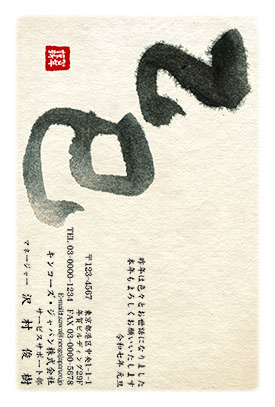 昨年は色々とお世話になりました
本年もよろしくお願いいたします
令和七年 元旦
〒123-4567 東京都港区中央1-1-1
年賀ビルディング20F
TEL 03-0000-1234 FAX 03-0000-5678
キンコーズ・ジャパン株式会社
サービスサポート部
マネージャー 沢村 俊樹